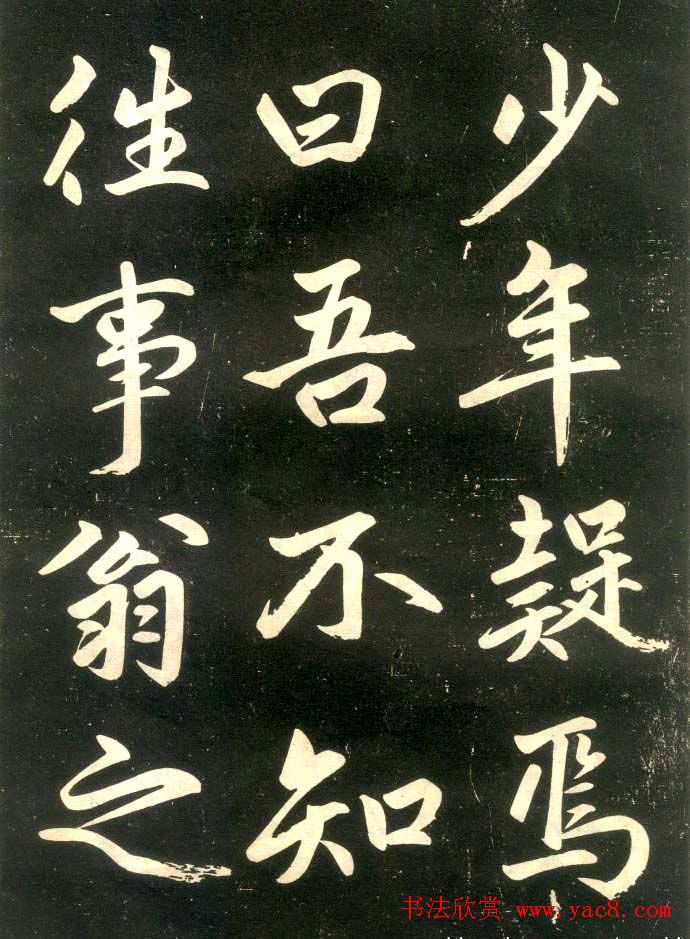 少年疑焉
曰吾不知
往事翁之
书法欣赏 www.yac8.com